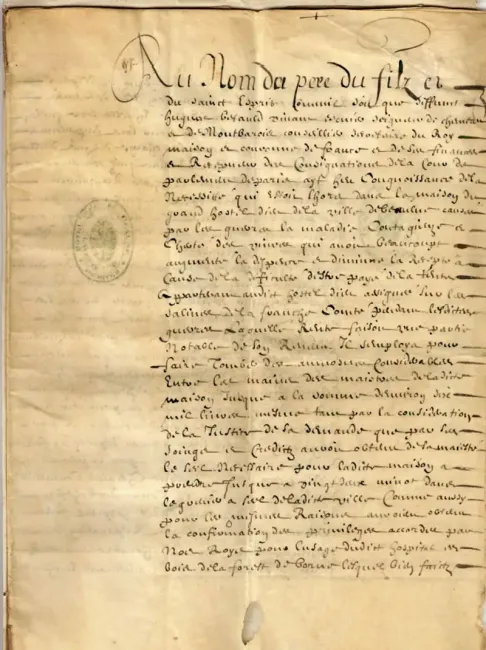 Au Nom du pere du filz et
du sainct esprit comme soit que deffunct
hugues
et de Montbarois conseiller secretaire du Roy
maison et couronne de france et de ses finances
et Receveur des Consignations de la Cour de
parlement de paris ayt heu Congnoissance de la
Necessité qui estoit lhors dans la maison du
grand hostel dieu de la ville de beaulne causée
par les guerres la maladie Contagieuse et
Cherté des vivres qui avoit beaucoupt
augmenté la despence et diminué la Recepte à
Cause de la dificulté destre payé de la Rente
appartenant audict hostel dieu assignée sur les
salines de la franche Comté pendant lesdittes
guerres Laquelle Rente faisoit une partie
Notable de son Revenu Il semploya pour
faire tomber des aumosnes Considerables
Entre les mains des maistres de ladite
maison jusques a la somme denviron dix
mil livres mesme tant par la consideration
de la Justice de sa demande que par ses
soings et Credit avoir obtenu de sa majesté
le sel Necessaire pour ladite maison a
prendre jusques a vingt deux minot dans
le grenier a sel de ladite ville Comme aussy
pour les mesmes Raisons avoir obtenu
la confirmation des privileges accordes par
Nos Roys pour lusage dudict hospital es
bois de la forest de borne lesquel bien faictz